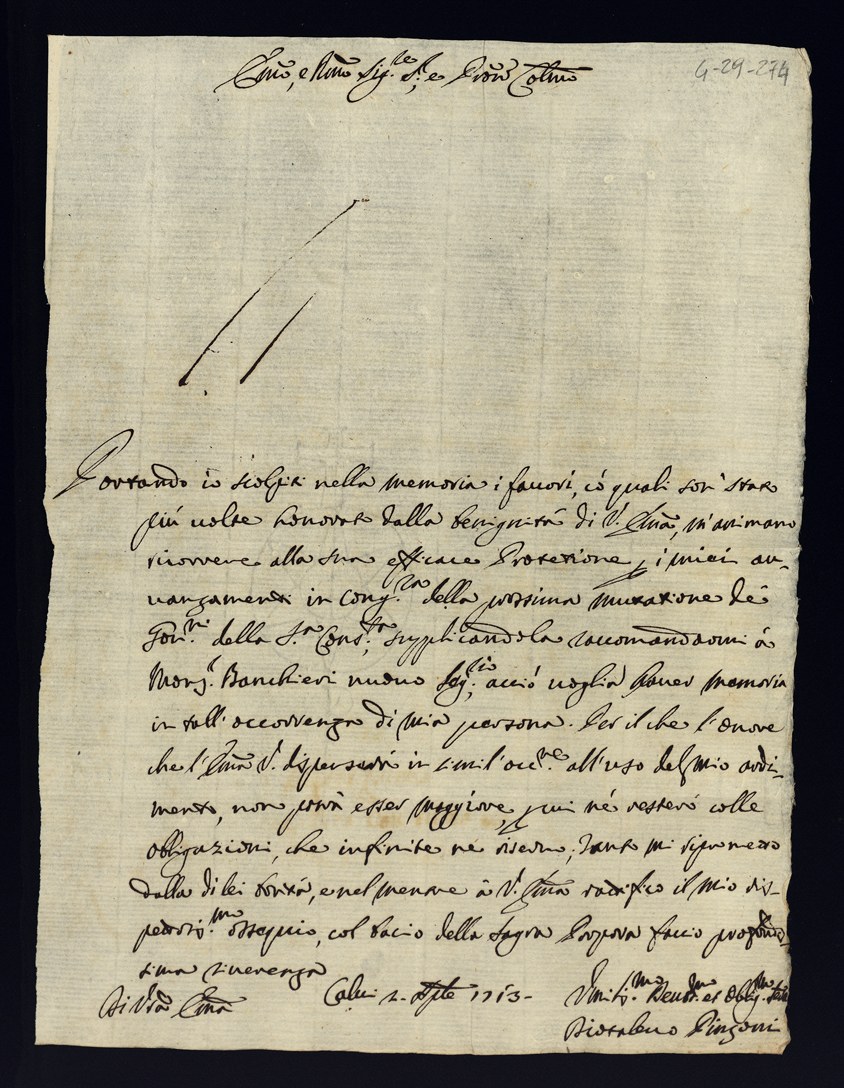 Em̃o, e Rm̃o Sig.re S.r, e Pron̄ Colm̃o
G-29-274
Portando io scolpiti nella memoria i fauori, có quali son' stato
piú uolte honorato dalla benignitá di V. Em̃a, m'animano
ricorrere alla sua efficace Protezione p i miei au-
uanzamenti in cong.ra della prossima mutazione de
Gou.ni della S.ra Cons.ta, supplicandola raccomandarmi á
Mons.r Banchieri nuouo Seg.rio, acció uoglia hauer memoria
in tall' occorrenza di mia persona. Per il che l'onore
che l'Em̃a V. dispenserá in simil' occ.ne all'uso del mio ardi-
mento, non potrá esser maggiore, p cui né resteró colle
obligazioni, che infinite né riserbo; tanto mi riprometto
dalla di lei bontá, e nel mentre á V. Em̃a ratifico il mio ris-
pettosis.mo ossequio, col bacio della Sagra Porpora faccio profondis-
sima riuerenza
Di Vrã Em̃a
Calui 2. 1713.
Vmilis.mo Deuot.mo et Oblig.mo
Pinzoni